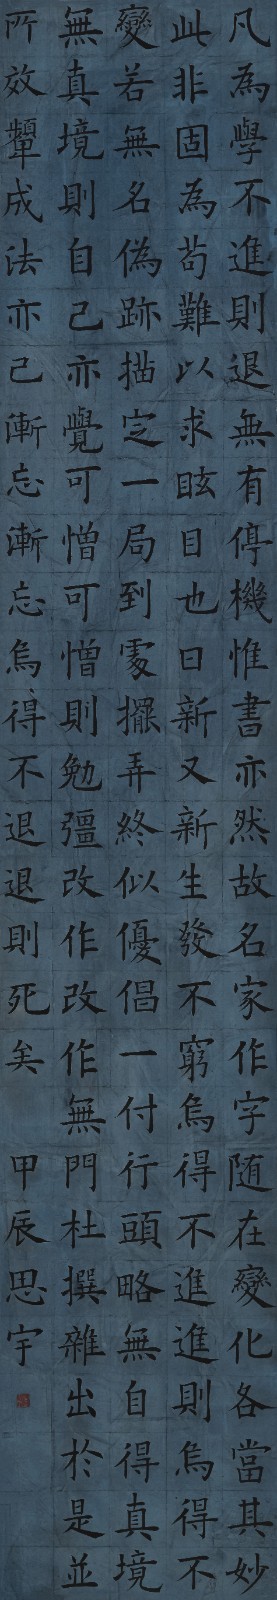 凡為學不進則退無有停機惟書亦然故名家作字随在變化各當其妙
此非固為苟難以求眩目也日新又新生發不窮烏得不進進則烏得不
變若無名偽跡描定一局到處擺弄終似優倡一付行頭略無自得真境
無真境則自己亦覺可憎可憎則勉彊改作改作無門杜撰雜出於是並
所效顰成法亦已漸忘漸忘烏得不退退則死矣 甲辰思宇